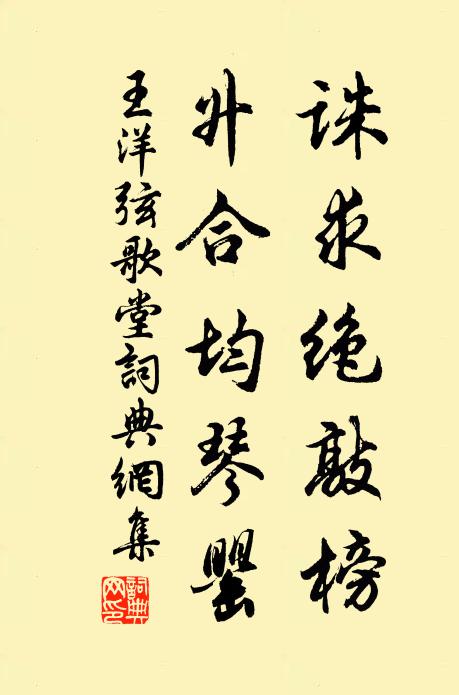 诛求绝敲榜
升合均琴罂
王洋弦歌堂詞典網集
詞典网印